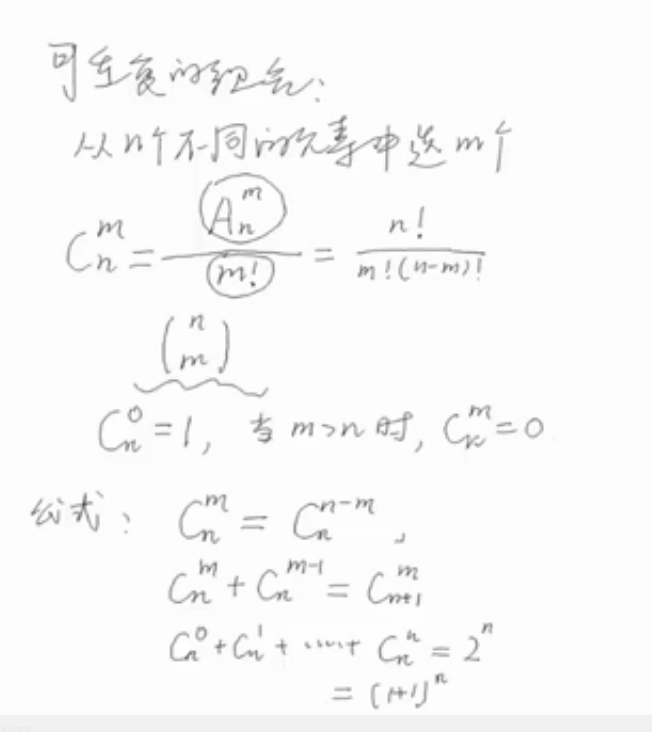 可重复的组合:
从n个不同的元素中选m个
C_n^m = A_n^m / m! = n! / m!(n-m)!
(n m)
C_n^0 = 1, 当 m>n 时, C_n^m = 0
公式: C_n^m = C_n^{n-m},
C_n^m + C_n^{m-1} = C_{n+1}^m
C_n^0 + C_n^1 + ······ + C_n^n = 2^n
= (1+1)^n